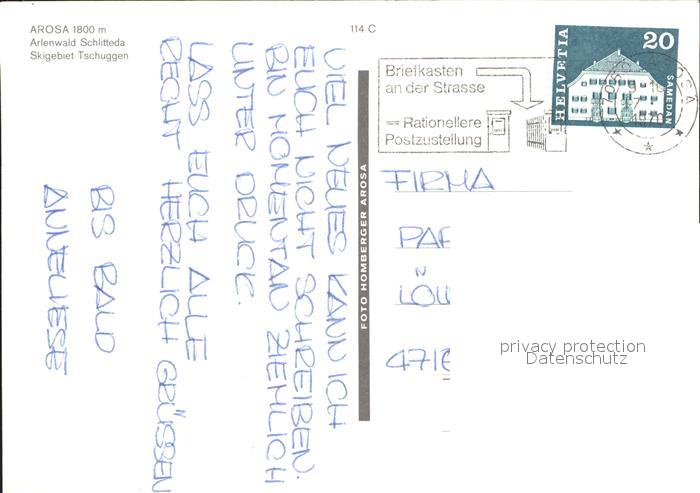 AROSA 1800 m
Arlenwald Schlitteda
Skigebiet Tschuggen
114 C
VIEL NEUES KANN ICH
EUCH NICHT SCHREIBEN.
BIN MOMENTAN ZIEMLICH
UNTER DRUCK.
LASS EUCH ALLE
RECHT HERZLICH GRÜSSEN
BIS BALD
ANNELIESE
FOTO HOMBERGER AROSA
Briefkasten
an der Strasse
= Rationellere
Postzustellung
HELVETIA
20
SAMEDAN
FIRMA
PAF
LÖW
4716
privacy protection
Datenschutz